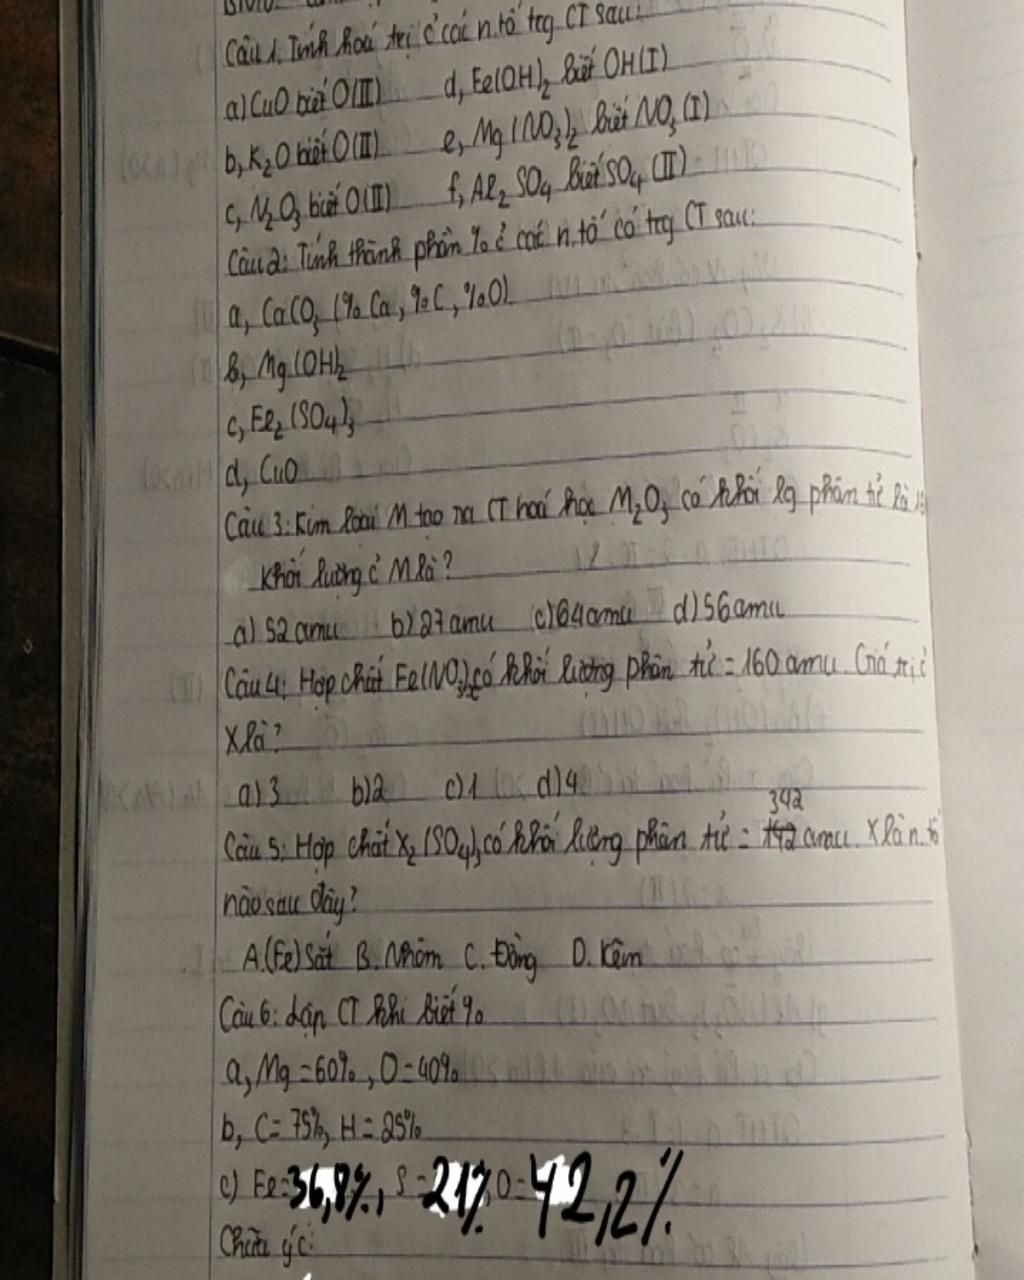 Câu 1. Tính hoá trị ở các n.tố trg CT sau:
a) CuO biết O(II) d, Fe(OH)₂ biết OH(I)
b, K₂O biết O(II) e, Mg(NO₃)₂ biết NO₃(I)
c, N₂O₃ biết O(II) f, Al₂ SO₄ biết SO₄ (II)
Câu 2: Tính thành phần % ở các n.tố có trg CT sau:
a, CaCO₃ (% Ca, %C, %O)
b, Mg(OH)₂
c, Fe₂(SO₄)₃
d, CuO
Câu 3: Kim loại M tạo ra CT hoá học M₂O₃ có khối lg phân tử là
Khối lượng ở M là?
a) 52 amu b) 27 amu c) 64 amu d) 56 amu
Câu 4: Hợp chất Fe(NO₃) có khối lượng phân tử = 160 amu. Giá trị ở
X là?
a) 3 b) 2 c) 1 d) 4
342
Câu 5: Hợp chất X₂(SO₄)₃ có khối lượng phân tử = 142 amu. X là n.tố
nào sau đây?
A.(Fe) Sắt B. Nhôm C. Đồng D. Kẽm
Câu 6: Lập CT khi biết %
a, Mg = 60%, O = 40%
b, C = 75%, H = 25%
c) Fe = 36,8%, S = 21% O = 42,2%
Chữa ý c: